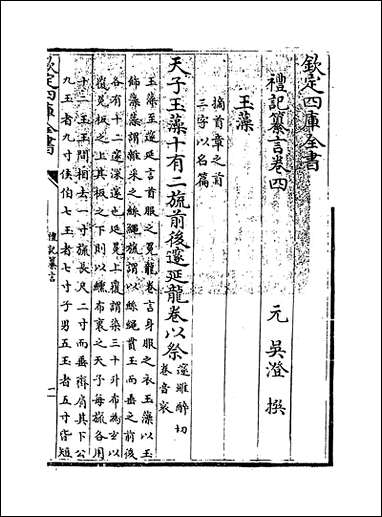 欽定四庫全書
禮記纂言卷四
元 吳澄 撰
玉藻
摘首章之首
三字以名篇
天子玉藻十有二旒前後邃延龍卷以祭
邃雖醉切
卷音衮
玉藻至邃延言首服之冕龍卷言身服之衣玉藻以玉
飾藻藻謂雜采之絲繩旒謂以絲繩貫玉而垂之前後
各有十二邃深邃也延冕上覆謂染三十升布為𤣥以
覆冕板之上其板之下則以纁布裹之天子每旒各用
十二玉玉間相去一寸旒長尺二寸而垂齊肩其下公
九玉者九寸侯伯七玉者七寸子男五玉者五寸皆短
欽定四庫全書
禮記纂言
一